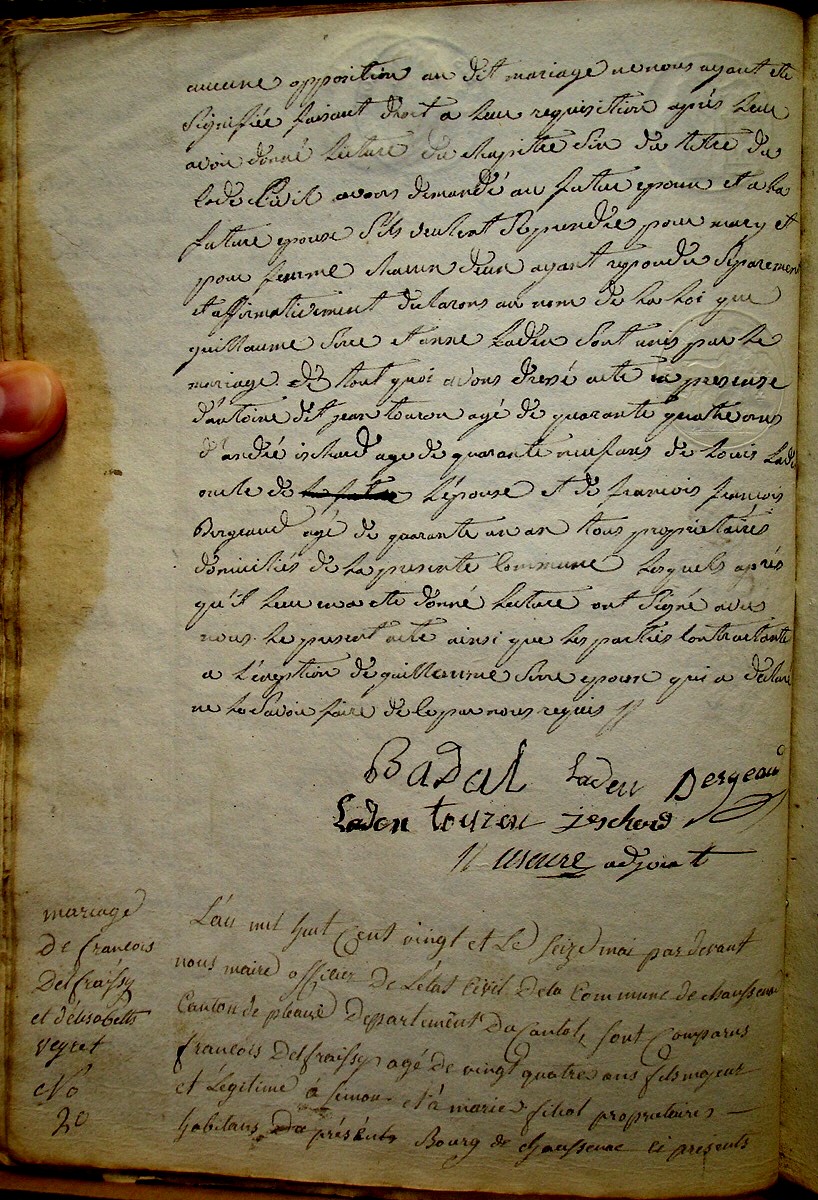 aucune opposition au dit mariage ne nous ayant ete
signifiée faisant droit a leur requisition après leur
avoir donné lecture du chapitre six du titre du
Code Civil avons demandé au future epoux et a la
future epouse s'ils veulent se prendre pour mary et
pour femme chacun deux ayant repondu separement
et affirmativement declarons au nom de la loi que
guillaume Sire et anne Laden sont unis par le
mariage de tout quoi avons dressé acte en presense
d'antoine dit jean touron agé de quarante quatre ans
d'andré ischard age de quarante neuf ans de Louis Laden
oncle de la future l'épouse et de francois francois
Bergeaud agé de quarante un an tous proprietaires
domiciliés de la presente Commune Lesquels après
qu'il leur en a ete donné lecture ont signé avec
nous le present acte ainsi que les parties contractante
a l'éxeption de guilleaume Sire epoux qui a declare
ne le savoir faire de le par nous requis
Badal Laden Bergeaud
Laden touron jeschard
adjoint
mariage
De francois
Delfraissy
et délisabeth
veyret
No
20
L'an mil huit Cent vingt et le seize mai par devant
nous maire officier De Létat Civil De la Commune de chaussenac
Canton de pleaux Departement Du Cantal, sont Comparus
francois Delfraissy agé de vingt quatre ans fils majeur
et Légitime à simon et à marie filiol proprietaires
habitans Du présent Bourg de chaussenac ci presents